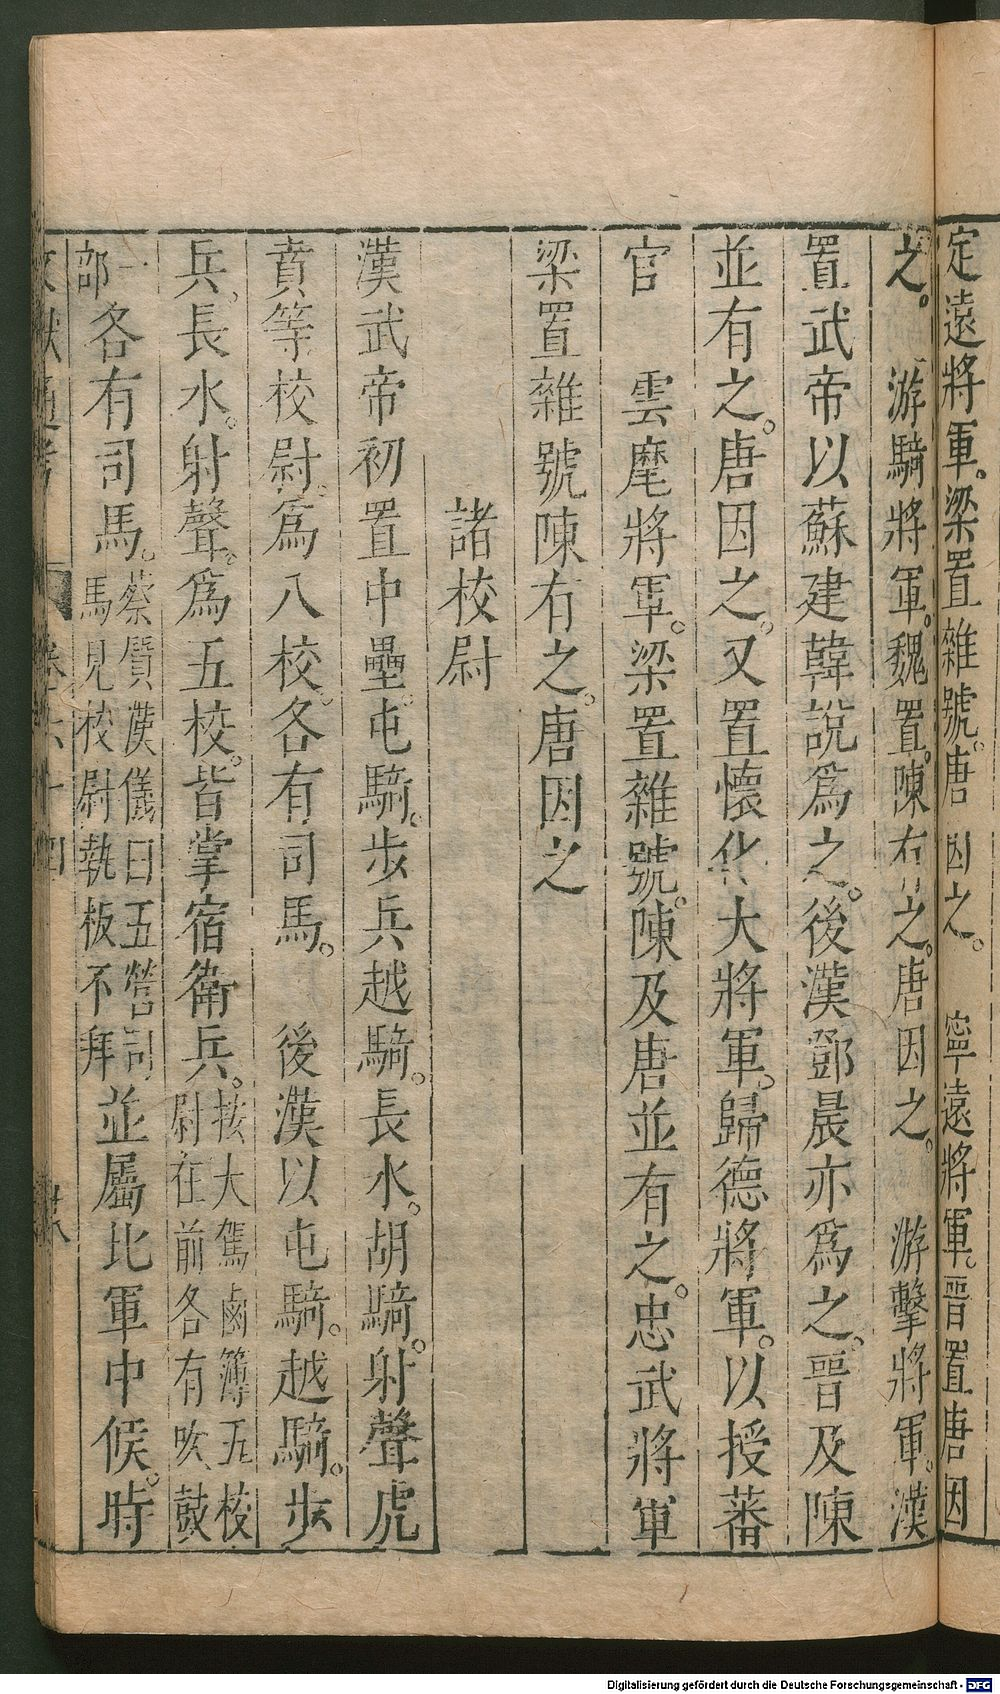 定遠將軍。梁置雜號。唐因之。　寧遠將軍。晉置唐因
之。　游騎將軍。魏置。陳有之。唐因之。　游擊將軍。漢
置武帝以蘇建韓說爲之。後漢鄧晨亦爲之。晉及陳
並有之。唐因之。又置懷化大將軍。歸德將軍。以授蕃
官　雲麾將軍。梁置雜號。陳及唐並有之。忠武將軍
梁置雜號陳有之。唐因之
諸校尉
漢武帝初置中壘。屯騎。步兵越騎。長水。胡騎。射聲虎
賁等校尉。爲八校。各有司馬。　後漢以屯騎。越騎。步
兵。長水。射聲。爲五校。皆掌宿衛兵。按大駕鹵簿五校
尉在前各有吹鼓
一
部各有司馬。蔡質漢儀曰五營司
馬見校尉執板不拜並屬北軍中候。時
文獻通考　卷六十四　廿八
Digitalisierung gefördert durch die Deutsche Forschungsgemeinschaft - DFG